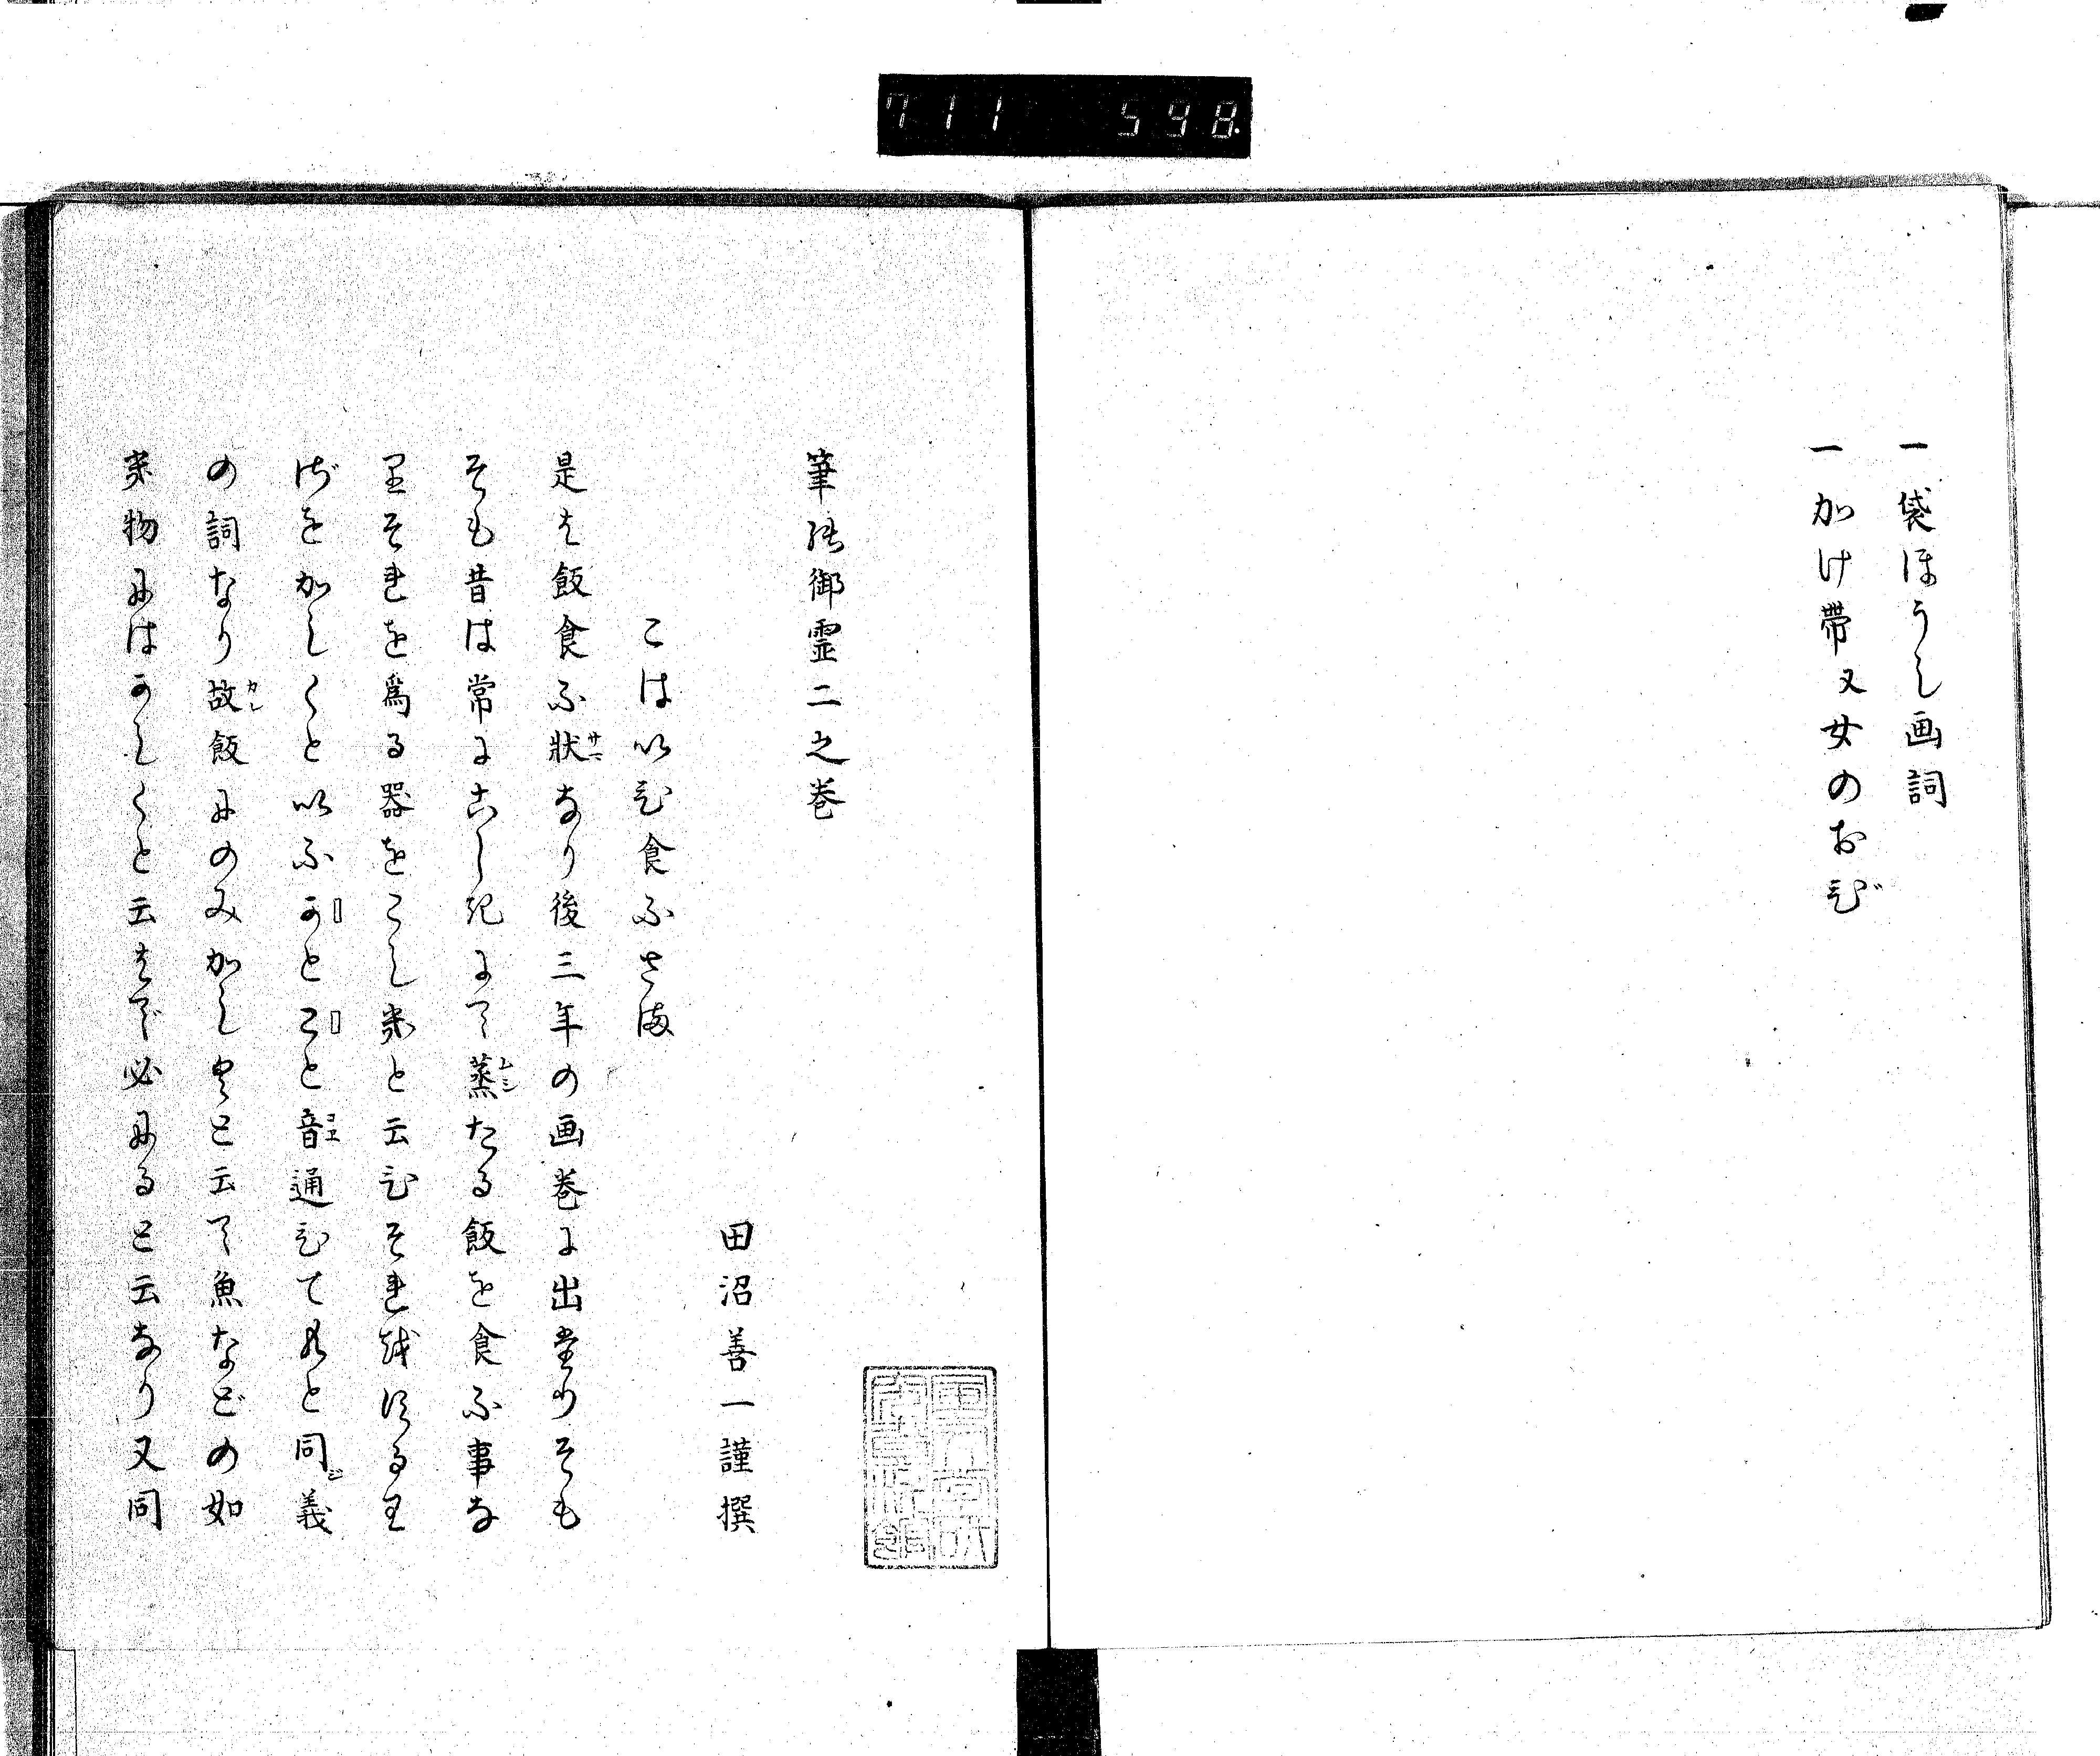 711 598.
一袋ほうし画詞
一加け帯又女のおび
筆能御霊二之巻
田沼善一謹撰
こはいひ食ふさま
是は飯食ふ狀サマなり後三年の画巻に出たりそも
そも昔は常にこしきにて蒸ムシたる飯を食ふ事な
りそれを爲る器をこしきと云ひそれをするわ
ざをかしくといふかとこと音コエ通ひてもと同ジ義
の詞なり故カレ飯にのみかしくと云て魚などの如
き物にはかしくと云はで必にると云なり又同